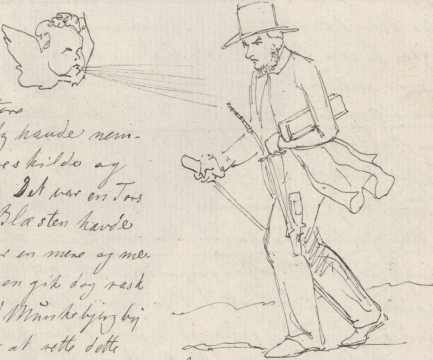 havde nem-
kilde og
Det var en Tors
Blæsten havde
en mere og me-
en gik dog rask
Munkebjergby
at rette dette